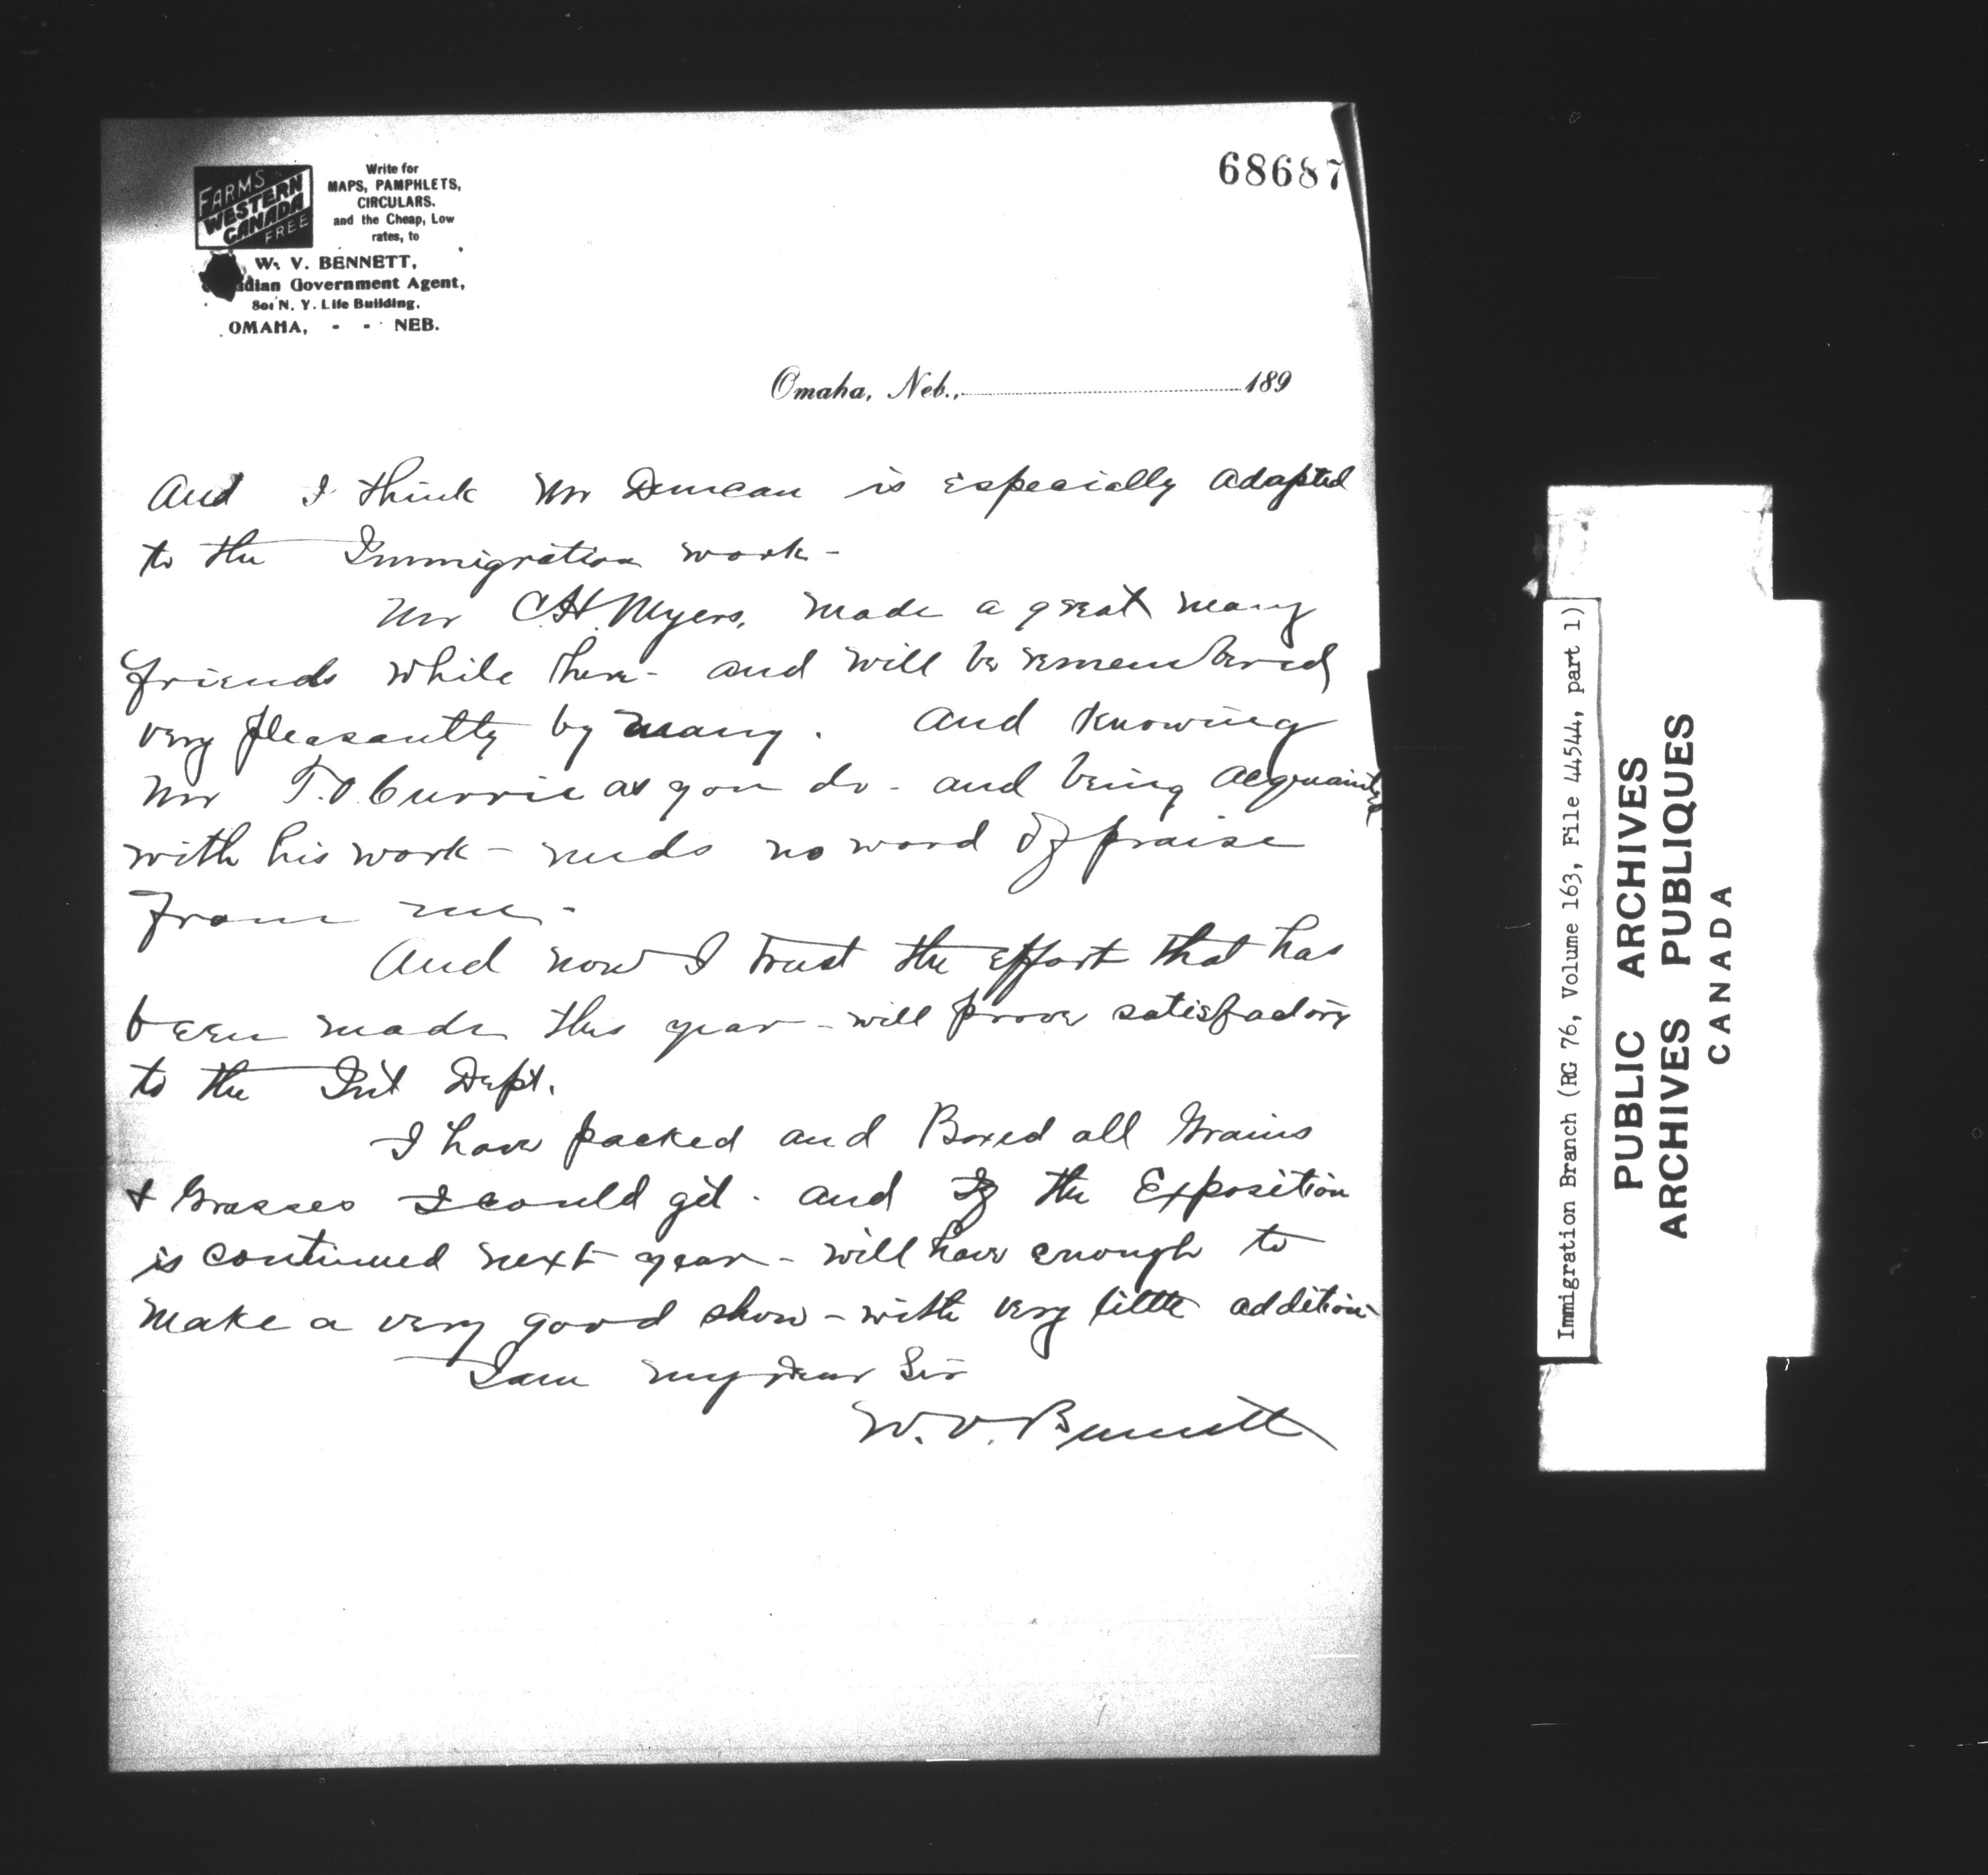 68687
FARMS IN
WESTERN
CANADA
FREE
Write for
MAPS, PAMPHLETS,
CIRCULARS.
and the Cheap, Low
rates, to
W. V. BENNETT,
dian Government Agent,
801 N. Y. Life Building.
OMAHA, - - NEB.
Omaha, Neb., 189
And I think Mr Duncan is especially adapted
to the Immigration work -
Mr C.H. Myers, made a great many
friends while here - and will be remembered
very pleasantly by many. And knowing
Mr T.O. Currie as you do - and being acquainted
with his work - needs no word of praise
from me -
And now I trust the effort that has
been made this year - will prove satisfactory
to the Int Dept.
I have packed and Boxed all Grains
& Grasses I could get. and If the Exposition
is continued next year - will have enough to
make a very good show - with very little addition -
I am my dear Sir
W. V. Bennett
Immigration Branch (RG 76, Volume 163, File 44544, part 1)
PUBLIC ARCHIVES
ARCHIVES PUBLIQUES
CANADA